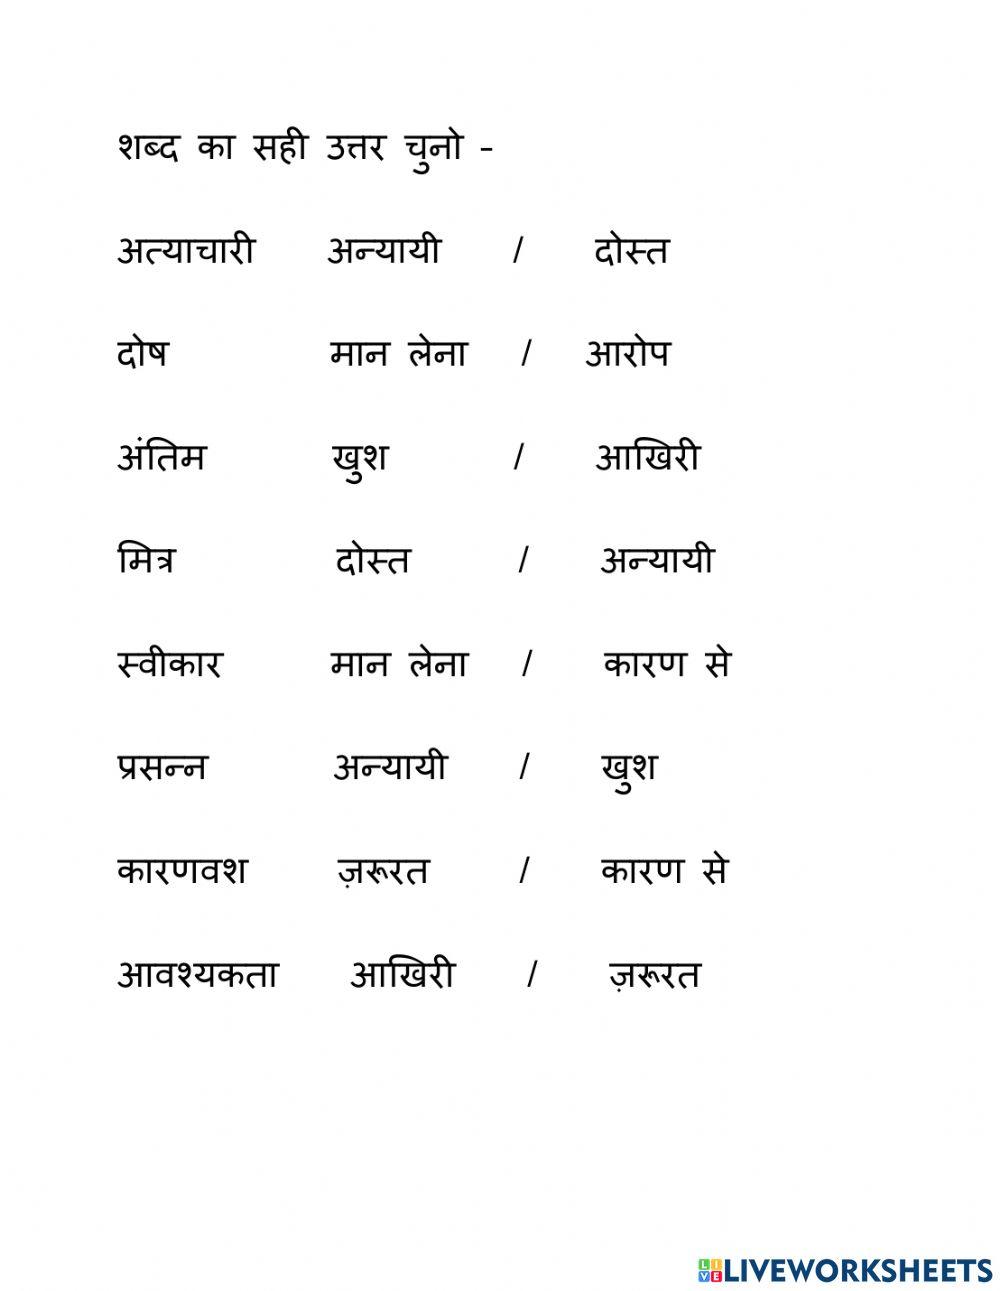 शब्द का सही उत्तर चुनो -
अत्याचारी अन्यायी / दोस्त
दोष मान लेना / आरोप
अंतिम खुश / आखिरी
मित्र दोस्त / अन्यायी
स्वीकार मान लेना / कारण से
प्रसन्न अन्यायी / खुश
कारणवश ज़रूरत / कारण से
आवश्यकता आखिरी / ज़रूरत
LIVE LIVEWORKSHEETS